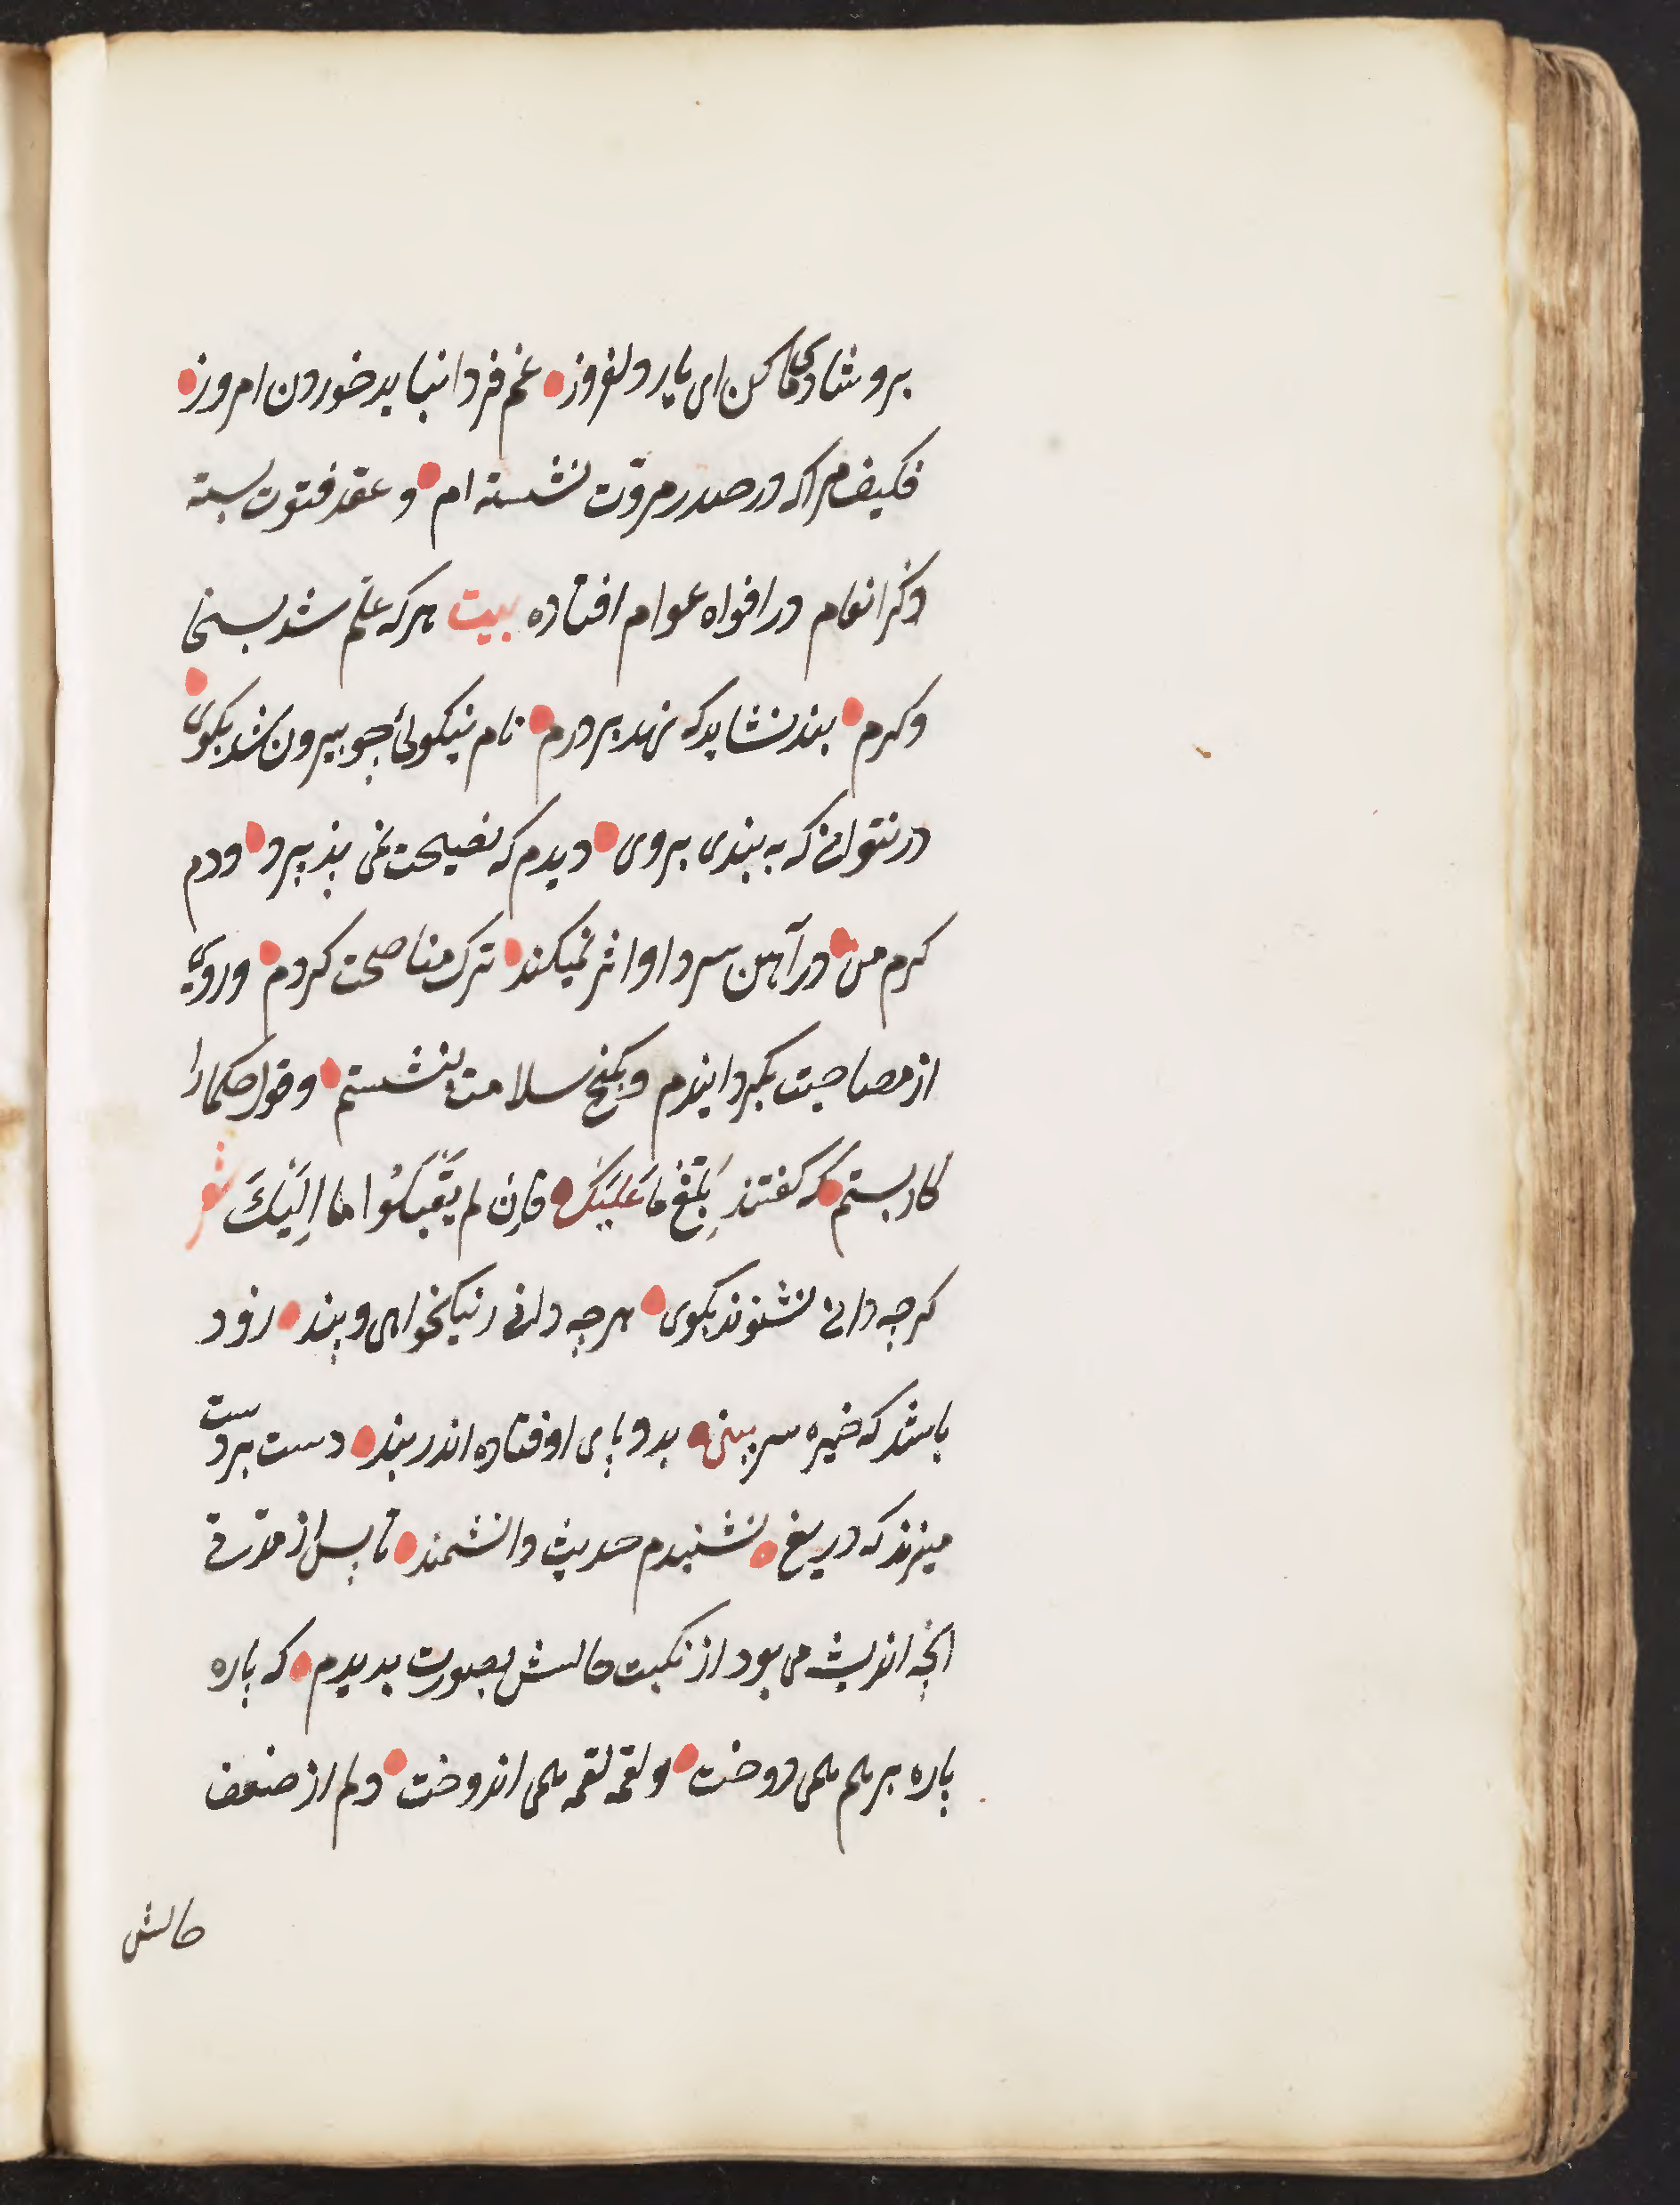 برو شادی کن ای یار دلفروز • غم فردا نباید خوردن امروز •
فکیف مرا که در صدر مروّت نشسته ام • و عقد فتوت بسته
ذکر انعام در افواه عوام افتاده بیت هر که علم شد بسخا
و کرم • بند نشاید که نهد بر درم • نام نیکوئی چو بیرون شد بکوی •
در نتوانی که به بندی بروی • دیدم که نصیحت نمی پذیرد • و دم
کرم من • در آهن سرد او اثر نمیکند • ترک مناصحت کردم • و روی
از مصاحبت بکردانیدم و بکنج سلامت بنشستم • و قول حکما را
کار بستم • که کفتند بَلِّغْ مَا عَلَیکَ • فَاِن لم یَقْبَلُوْا ما اِلَیْکَ شعر
کرچه دانی نشنوند بکوی • هر چه دانی ز نیکخواهی و پند • زود
باشد که خیره سر بینی • بدو پای اوفتاده اندر بند • دست بر دست
میزند که دریغ • نشنیدم حدیث دانشمند • تا پس از مدّتی
انچه اندیشه می بود از نکبت حالش بصورت بدیدم • که پاره
پاره بر هم همی دوخت • و لقمه لقمه همی اندوخت • دلم از ضعف
حالش